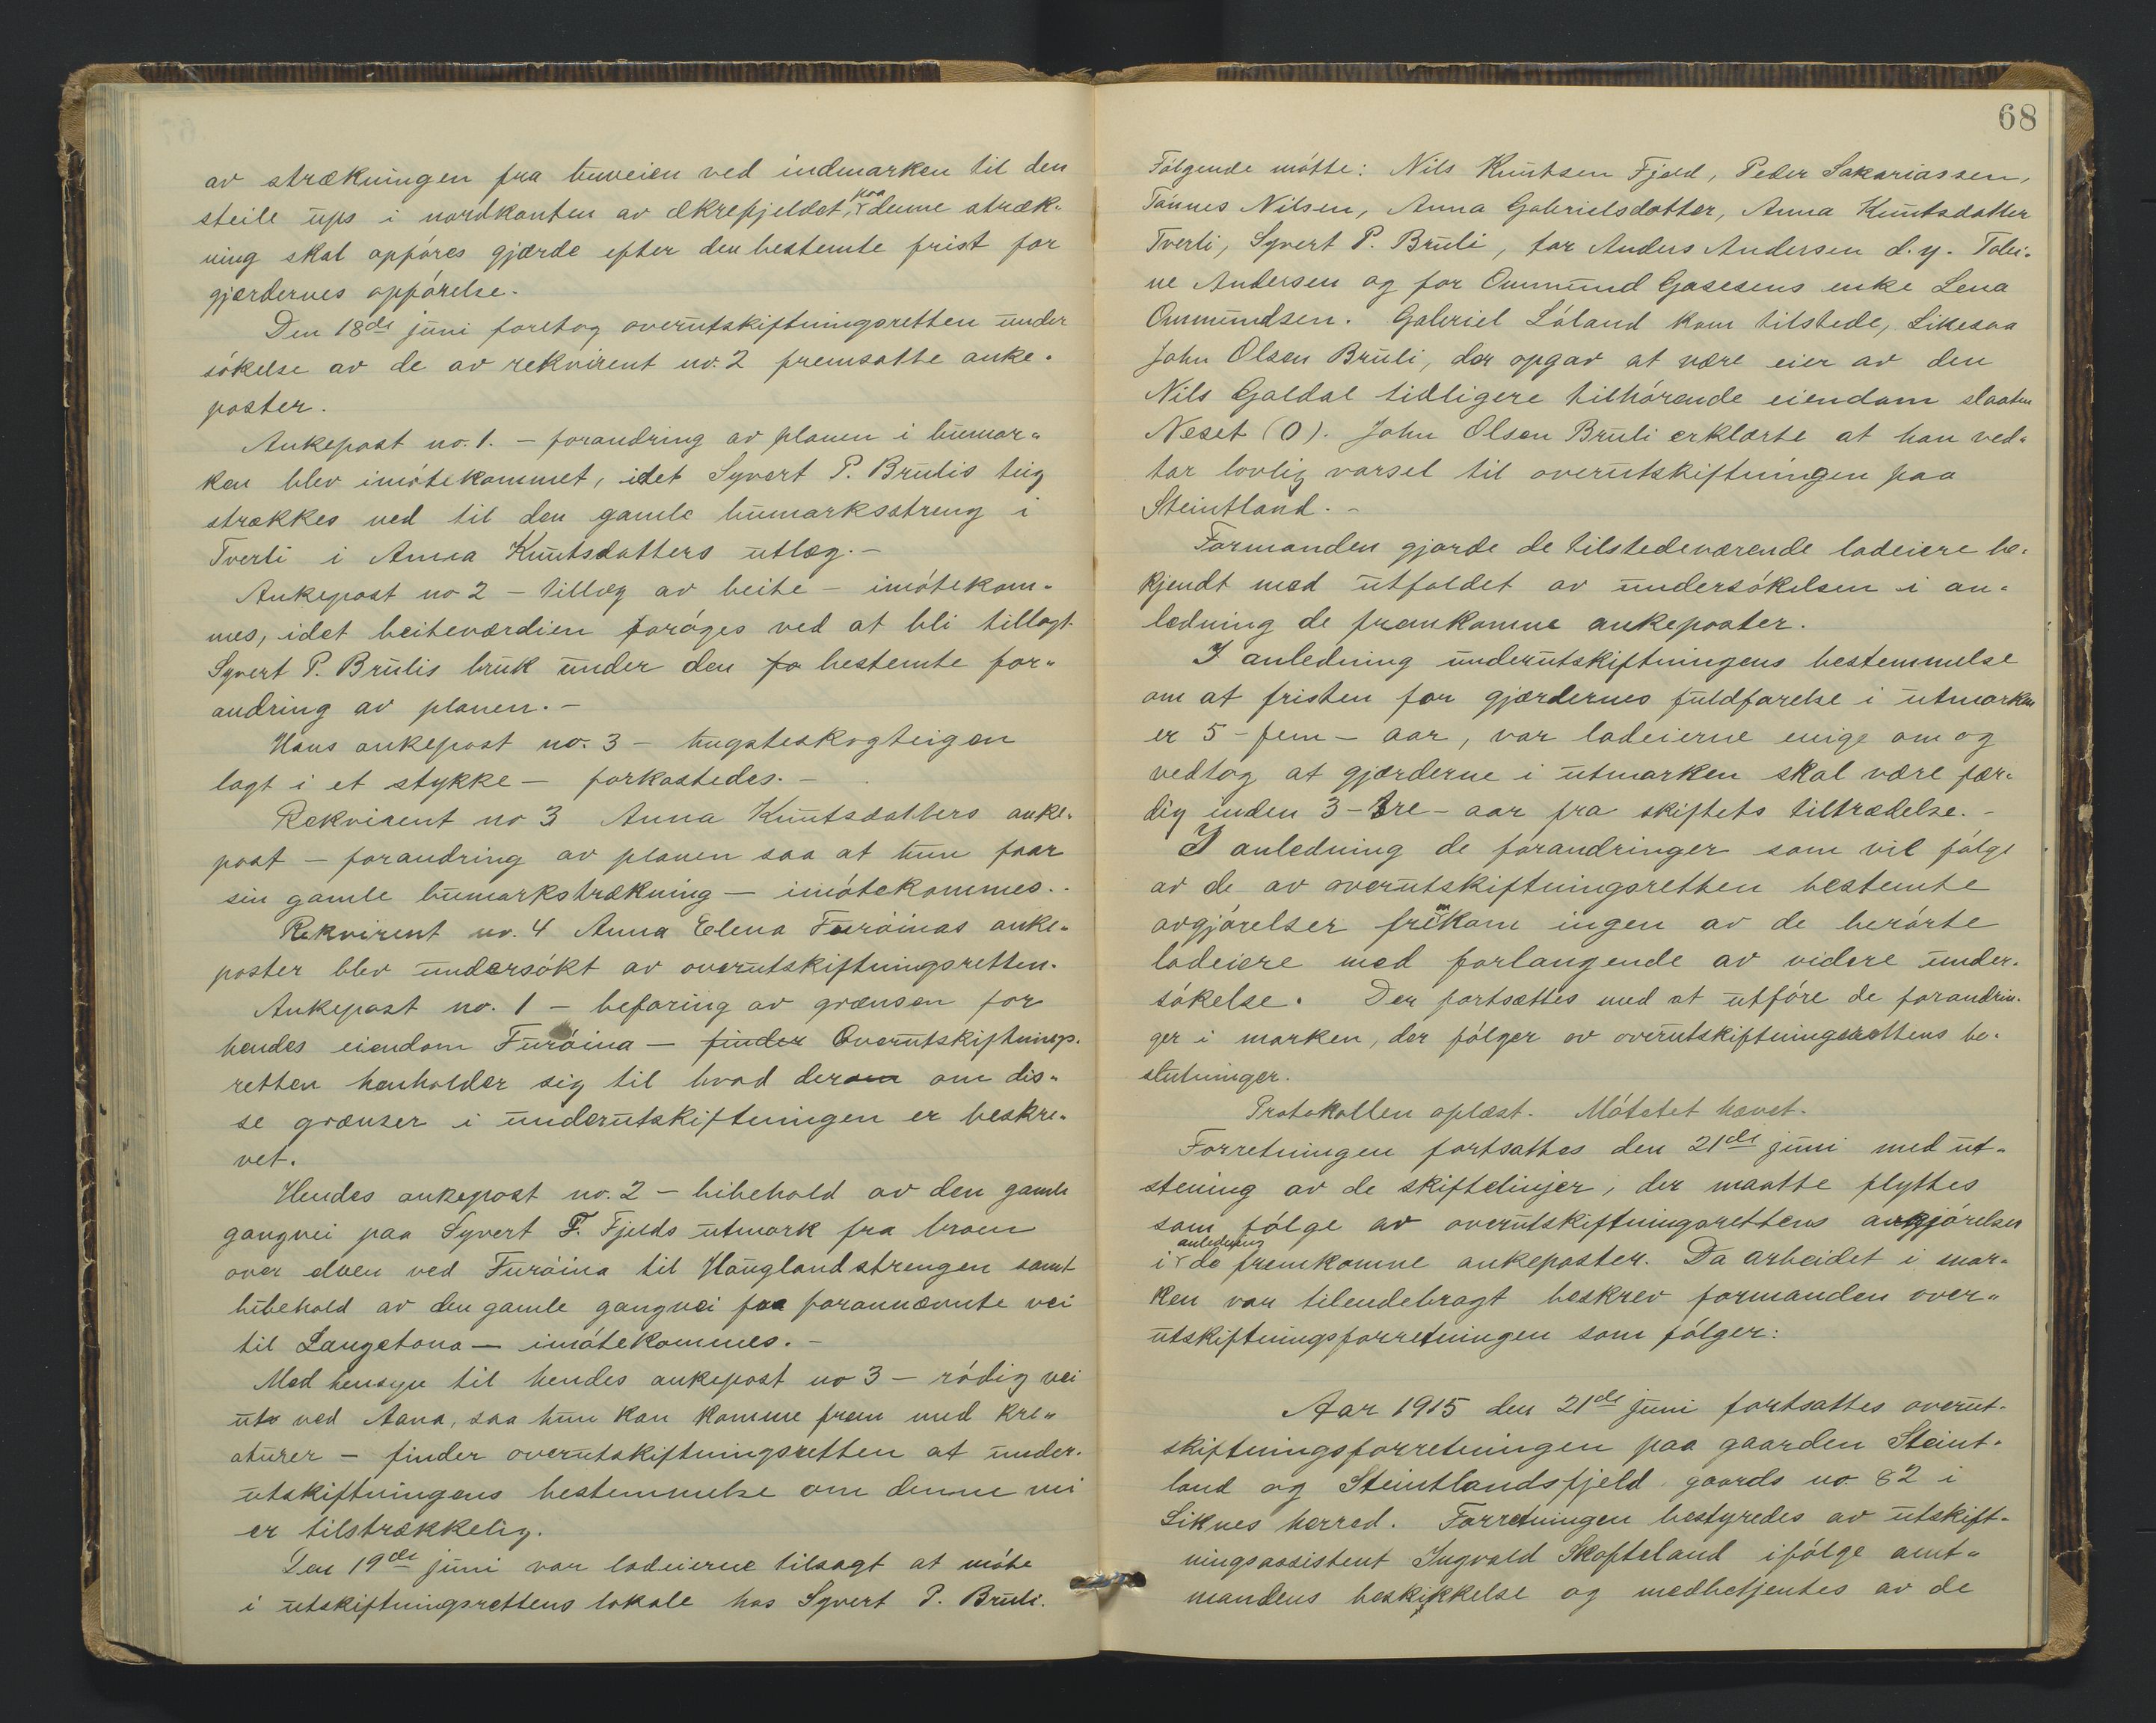 av strækningen fra buveien ved indmarken til den
steile ups i nordkanten av Ekrefjeldet, paa denne stræk-
ning skal opføres gjærde efter den bestemte frist for
gjærdernes opførelse.
Den 18de juni foretog overutskiftningsretten under
søkelse av de av rekvirent no. 2 fremsatte anke-
poster.
Ankepost no. 1. – forandring av planen i bumar-
ken blev imøtekommet, idet Syvert P. Brulis teig
strækkes ned til den gamle bumarksstreng i
Tverli i Anna Knutsdatters utlæg. –
Ankepost no 2 – tillæg av beite – imøtekom-
mes, idet beiteværdien forøges ved at bli tillagt
Syvert P. Brulis bruk under den fo bestemte for-
andring av planen. –
Hans ankepost no. 3 – hugsteskogteigen
lagt i et stykke – forkastedes. –
Rekvirent no 3 Anna Knutsdatters anke-
post – forandring av planen saa at hun faar
sin gamle bumarkstrækning – imøtekommes. -
Rekvirent no. 4 Anna Elena Furøinas anke-
poster blev undersøkt av overutskiftningsretten.
Ankepost no. 1 – befaring av grænsen for
hendes eiendom Furøina – finder Overutskiftnings-
retten henholder sig til hvad derom om dis-
se grænser i underutskiftningen er beskre-
vet.
Hendes ankepost no. 2 – bibehold av den gamle
gangvei paa Syvert F. Fjelds utmark fra broen
over elven ved Furøina til Hauglandstrengen samt
bibehold av den gamle gangvei fra forannævnte vei
til Langetona – imøtekommes. –
Med hensyn til hendes ankepost no 3 – rødig vei
ute ved Aana, saa hun kan komme frem med kre-
aturer – finder overutskiftningsretten at under-
utskiftningens bestemmelse om denne vei
er tilstrækkelig.
Den 19de juni var lodeierne tilsagt at møte
i utskiftningsrettens lokale hos Syvert P. Bruli.
68
Følgende møtte: Nils Knutsen Fjeld, Peder Sakariassen,
Tønnes Nilsen, Anna Gabrielsdatter, Anna Knutsdatter
Tverli, Syvert P. Bruli, for Anders Andersen d.y. Tobi-
ne Andersen og for Ommund Gasesens enke Lena
Ommundsen. Gabriel Løland kom tilstede, Likesaa
John Olsen Bruli, der opgav at være eier av den
Nils Galdal tidligere tilhørende eiendom slaaten
Neset (O). John Olsen Bruli erklærte at han ved-
tar lovlig varsel til overutskiftningen paa
Steintland. –
Formanden gjorde de tilstedeværende lodeiere be-
kjendt med utfaldet av undersøkelsen i an-
ledning de fremkomne ankeposter.
I anledning underutskiftningens bestemmelse
om at fristen for gjærdernes fuldførelse i utmarken
er 5 – fem – aar, var lodeierne enige om og
vedtog at gjærderne i utmarken skal være fær-
dig inden 3 – tre – aar fra skiftets tiltrædelse. –
I anledning de forandringer som vil følge
av de av overutskiftningsretten bestemte
avgjørelser fremkom ingen av de berørte
lodeiere med forlangende av videre under-
søkelse. Der fortsættes med at utføre de forandrin-
ger i marken, der følger av overutskiftningsrettens be-
slutninger.
Protokollen oplæst. Møtetet hævet.
Forretningen fortsattes den 21de juni med ut-
stening av de skiftelinjer, der maatte flyttes
som følge av overutskiftningsrettens avgjørelser
i anledning de fremkomne ankeposter. Da arbeidet i mar-
ken var tilendebragt beskrev formanden over-
utskiftningsforretningen som følger:
Aar 1915 den 21de juni fortsattes overut-
skiftningsforretningen paa gaarden Steint-
land og Steintlandsfjeld gaards no. 82 i
Liknes herred. Forretningen bestyredes av utskift-
ningsassistent Ingvald Skofteland ifølge amt-
mandens beskikkelse og medbetjentes av de